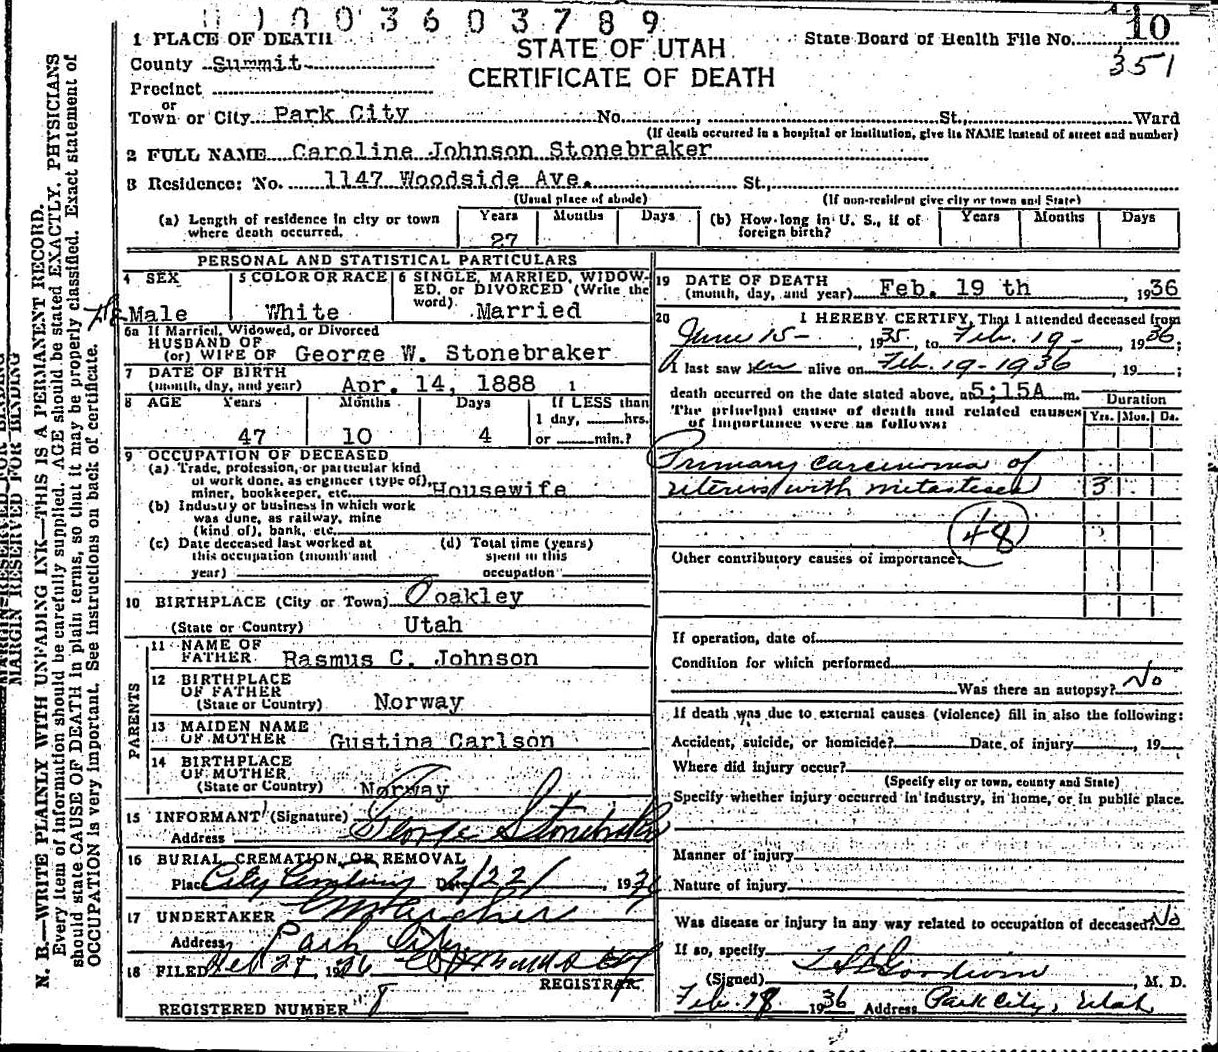 0 1 0 0 3 6 0 3 7 8 9
10
351
State Board of Health File No.
STATE OF UTAH
CERTIFICATE OF DEATH
1 PLACE OF DEATH
County Summit
Precinct
or
Town or City Park City No. , St., Ward
(If death occurred in a hospital or institution, give its NAME instead of street and number)
2 FULL NAME Caroline Johnson Stonebraker
3 Residence: No. 1147 Woodside Ave. St.,
(Usual place of abode) (If non-resident give city or town and State)
(a) Length of residence in city or town where death occurred. Years 27 Months Days
(b) How long in U. S., if of foreign birth? Years Months Days
PERSONAL AND STATISTICAL PARTICULARS
4 SEX
Male
5 COLOR OR RACE
White
6 SINGLE, MARRIED, WIDOW-
ED, or DIVORCED (Write the
word)
Married
6a If Married, Widowed, or Divorced
HUSBAND OF
(or) WIFE OF George W. Stonebraker
7 DATE OF BIRTH
(month, day, and year) Apr. 14, 1888
8 AGE Years Months Days If LESS than
1 day, hrs.
47 10 4 or min.?
9 OCCUPATION OF DECEASED
(a) Trade, profession, or particular kind
of work done, as engineer (type of),
miner, bookkeeper, etc. Housewife
(b) Industry or business in which work
was done, as railway, mine
(kind of), bank, etc.
(c) Date deceased last worked at
this occupation (month and
year)
(d) Total time (years)
spent in this
occupation
10 BIRTHPLACE (City or Town) Ooakley
(State or Country) Utah
PARENTS
11 NAME OF
FATHER Rasmus C. Johnson
12 BIRTHPLACE
OF FATHER
(State or Country) Norway
13 MAIDEN NAME
OF MOTHER Gustina Carlson
14 BIRTHPLACE
OF MOTHER
(State or Country) Norway
15 INFORMANT (Signature) George Stonebraker
Address
16 BURIAL, CREMATION, OR REMOVAL
Place City Cemetery Date 2/22/ , 1936
17 UNDERTAKER
Address Park City
18 FILED Feb 21, 1936
REGISTRAR
REGISTERED NUMBER 8
19 DATE OF DEATH
(month, day, and year) Feb. 19 th , 1936
20 I HEREBY CERTIFY, That I attended deceased from
June 15- , 1935, to Feb. 19- , 1936;
I last saw her alive on Feb. 19-1936 , 19 ;
death occurred on the date stated above, at 5;15A m.
The principal cause of death and related causes
of importance were as follows:
Duration
Yrs. Mos. Ds.
Primary carcinoma of
uterus with metastases 3
48
Other contributory causes of importance:
If operation, date of
Condition for which performed
Was there an autopsy? No
If death was due to external causes (violence) fill in also the following:
Accident, suicide, or homicide? Date of injury , 19
Where did injury occur?
(Specify city or town, county and State)
Specify whether injury occurred in industry, in home, or in public place.
Manner of injury
Nature of injury
Was disease or injury in any way related to occupation of deceased? No
If so, specify
(Signed) Goodwin , M. D.
Feb. 18 1936 Address Park City, Utah
MARGIN RESERVED FOR BINDING
MARGIN RESERVED FOR BINDING
N. B.—WRITE PLAINLY WITH UNFADING INK—THIS IS A PERMANENT RECORD.
Every item of information should be carefully supplied. AGE should be stated EXACTLY. PHYSICIANS
should state CAUSE OF DEATH in plain terms, so that it may be properly classified. Exact statement of
OCCUPATION is very important. See instructions on back of certificate.